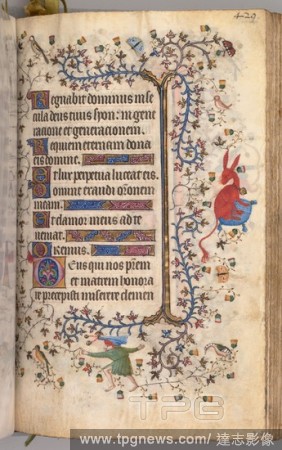 429
Regnabit dominus in se
cula deus tuus syon: in gene
ratione et generationem.
Requiem eternam dona
eis domine.
Et lux perpetua luceat eis.
Domine exaudi orōnem
meam.
Et clamor meus ad te
veniat.
Oremus.
Deus qui nos pr̄em
et matrem honora
re precepisti miserere clemen
TPG
www.tpgnews.com / 達志影像